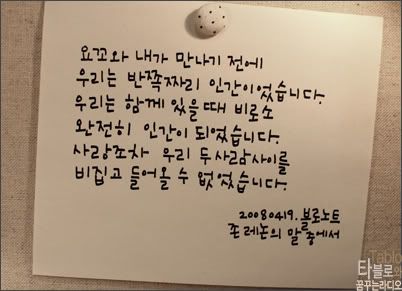 요꼬와 내가 만나기 전에
우리는 반쪽짜리 인간이었습니다.
우리는 함께 있을때 비로소
완전히 인간이 되었습니다.
사랑조차 우리 두사람사이를
비집고 들어올 수 없었습니다.
20080419. 블로노트
존 레논의 말 중에서
Tablo
타블로와
꿈꾸는라디오